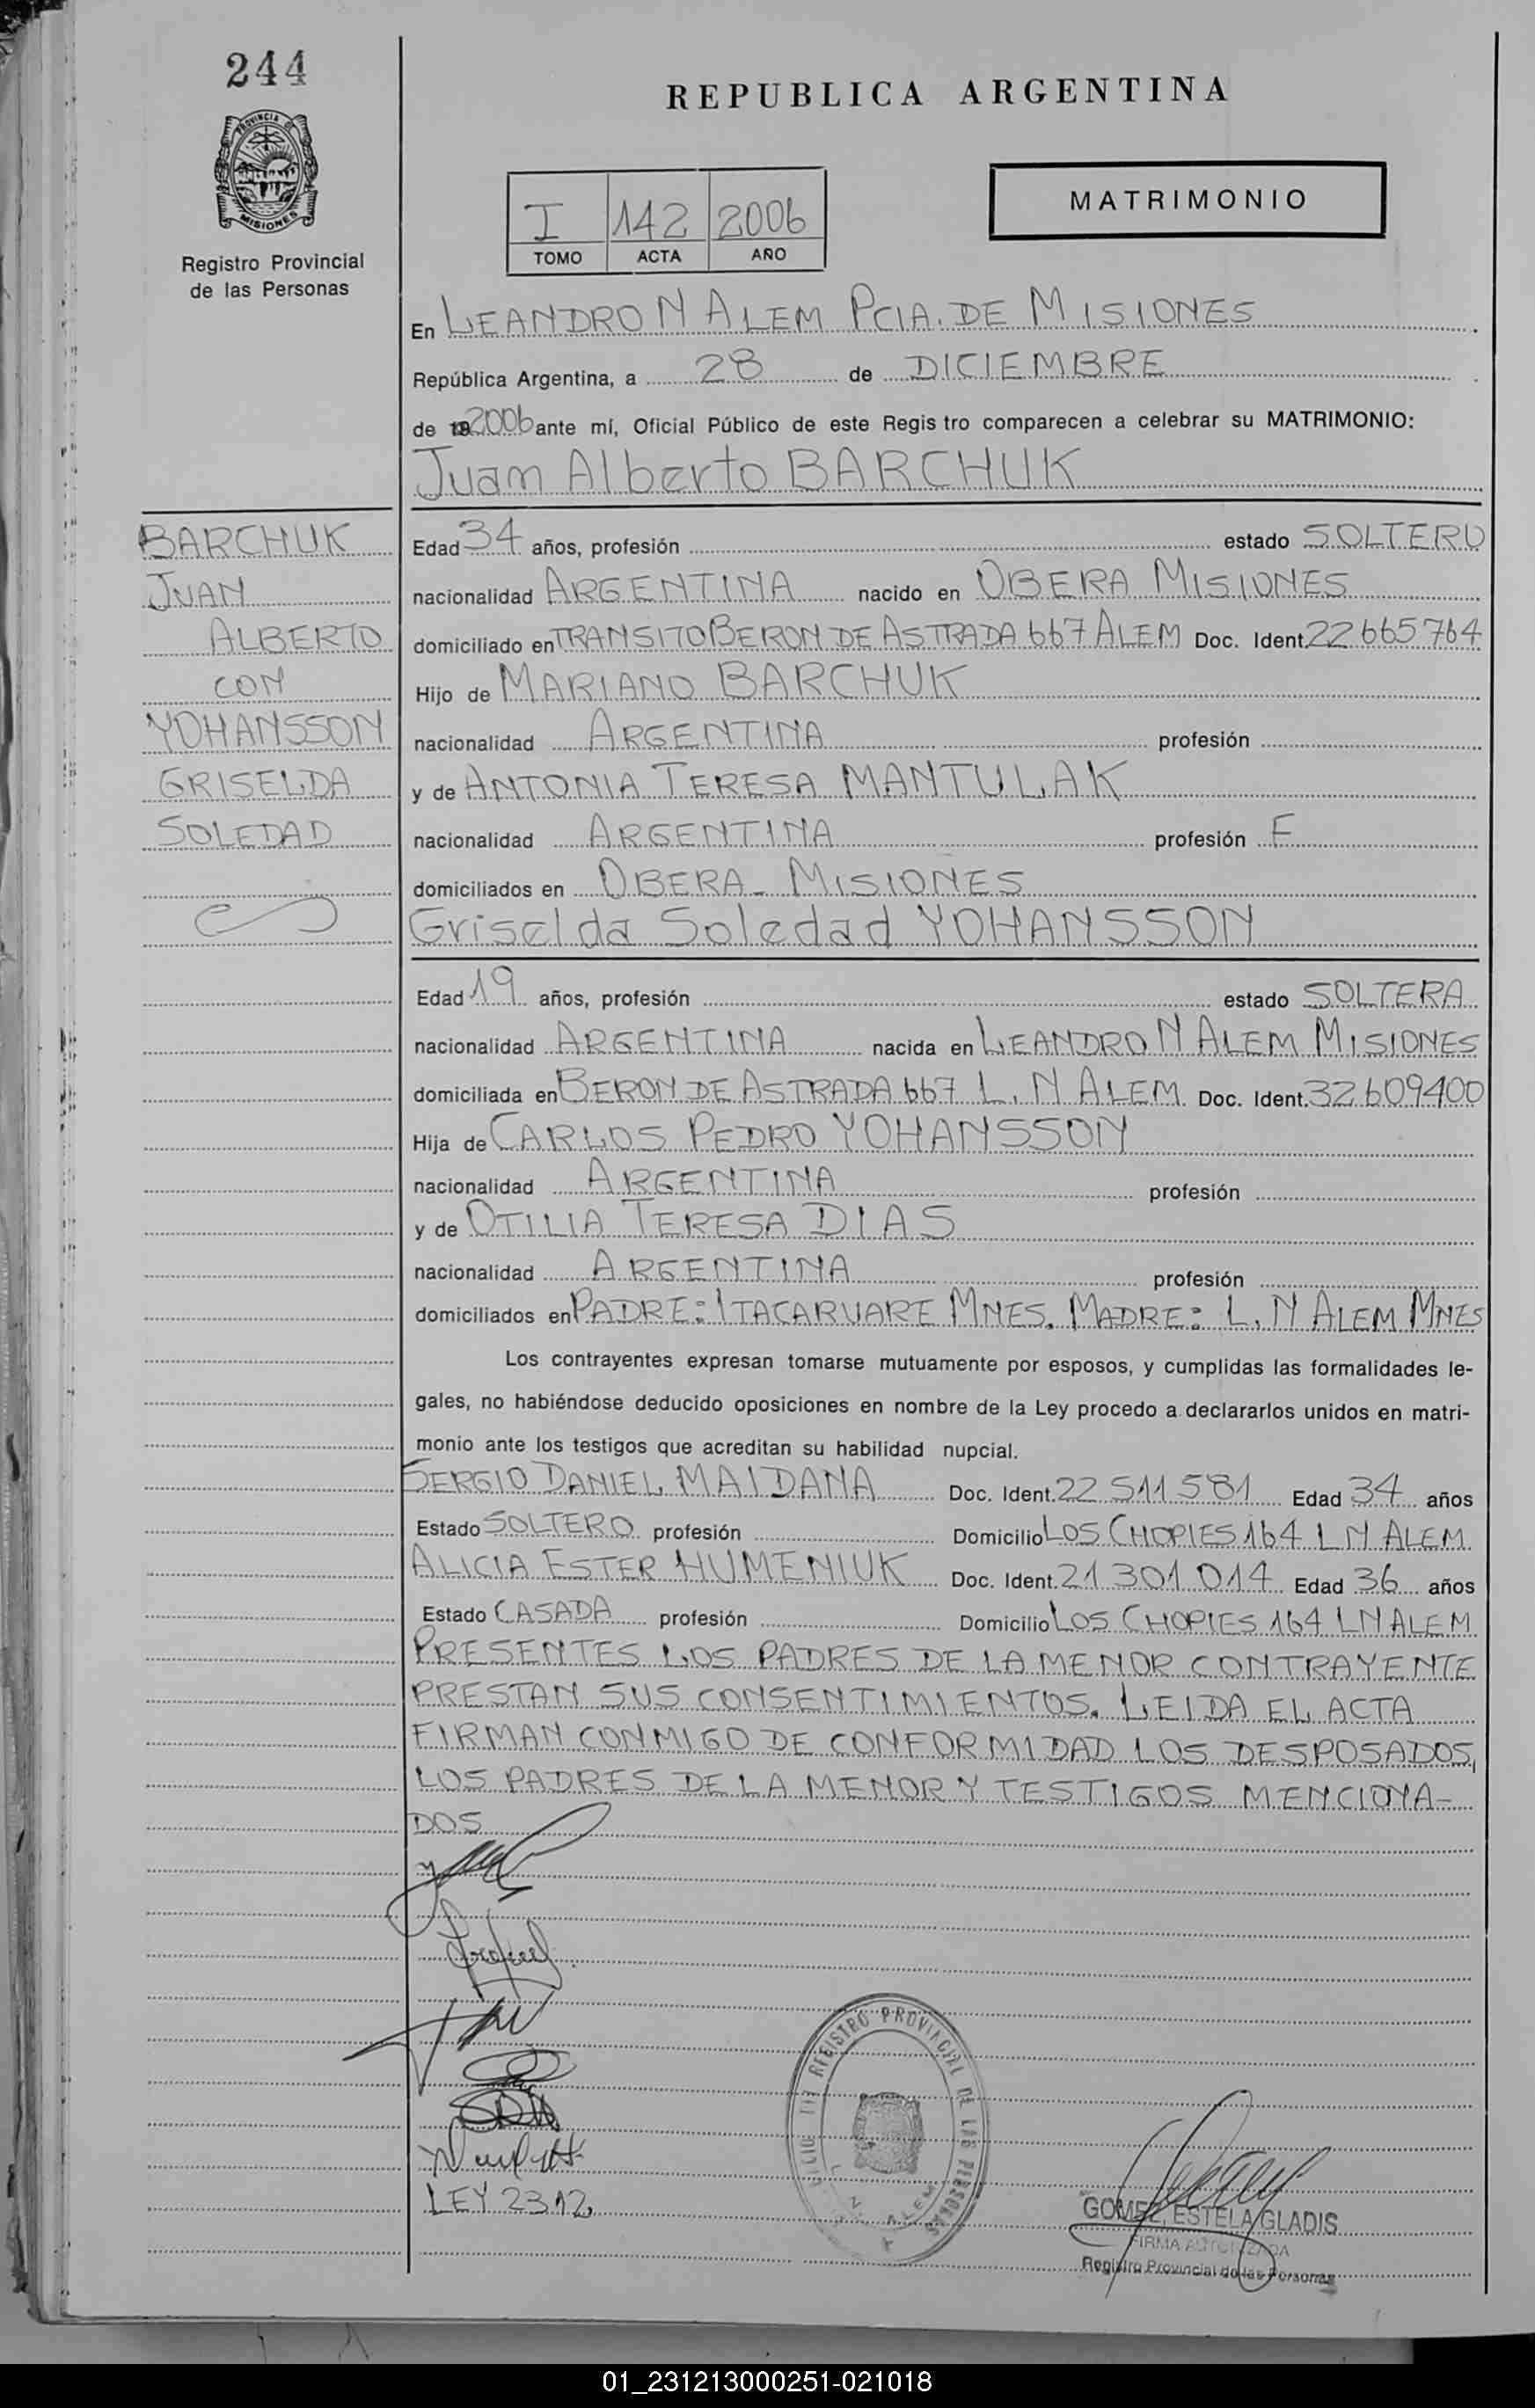 244
REPUBLICA ARGENTINA
PROVINCIA DE
MISIONES
Registro Provincial
de las Personas
MATRIMONIO
I 142 2006
TOMO ACTA AÑO
En LEANDRO N ALEM PCIA. DE MISIONES
República Argentina, a 28 de DICIEMBRE
de 19 2006 ante mí, Oficial Público de este Regis tro comparecen a celebrar su MATRIMONIO:
Juan Alberto BARCHUK
BARCHUK
JUAN
ALBERTO
CON
YOHANSSON
GRISELDA
SOLEDAD
Edad 34 años, profesión estado SOLTERO
nacionalidad ARGENTINA nacido en OBERA MISIONES
domiciliado en TRANSITO BERON DE ASTRADA 667 ALEM Doc. Ident. 22665764
Hijo de MARIANO BARCHUK
nacionalidad ARGENTINA profesión
y de ANTONIA TERESA MANTULAK
nacionalidad ARGENTINA profesión F
domiciliados en OBERA - MISIONES
Griselda Soledad YOHANSSON
Edad 19 años, profesión estado SOLTERA
nacionalidad ARGENTINA nacida en LEANDRO N ALEM MISIONES
domiciliada en BERON DE ASTRADA 667 L. N ALEM Doc. Ident. 32609400
Hija de CARLOS PEDRO YOHANSSON
nacionalidad ARGENTINA profesión
y de OTILIA TERESA DIAS
nacionalidad ARGENTINA profesión
domiciliados en PADRE: ITACARUARE MNES. MADRE: L. N ALEM MNES
Los contrayentes expresan tomarse mutuamente por esposos, y cumplidas las formalidades le-
gales, no habiéndose deducido oposiciones en nombre de la Ley procedo a declararlos unidos en matri-
monio ante los testigos que acreditan su habilidad nupcial.
SERGIO DANIEL MAIDANA Doc. Ident. 22 511 581 Edad 34 años
Estado SOLTERO profesión Domicilio LOS CHOPIES 164 L N ALEM
ALICIA ESTER HUMENIUK Doc. Ident. 21 301 014 Edad 36 años
Estado CASADA profesión Domicilio LOS CHOPIES 164 L N ALEM
PRESENTES LOS PADRES DE LA MENOR CONTRAYENTE
PRESTAN SUS CONSENTIMIENTOS. LEIDA EL ACTA
FIRMAN CONMIGO DE CONFORMIDAD LOS DESPOSADOS,
LOS PADRES DE LA MENOR Y TESTIGOS MENCIONA-
DOS
LEY 2312
REGISTRO PROVINCIAL DE LAS PERSONAS
ALEM
GOMEZ, ESTELA GLADIS
FIRMA AUTORIZADA
Registro Provincial de las Personas
01_231213000251-021018